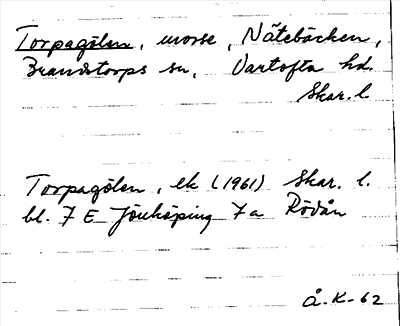 Torpagölen, mosse, Nätebäcken,
Brandstorps sn, Vartofta hd.
Skar. l.
Torpagölen, ek (1961) Skar. l.
bl. 7 E Jönköping 7a Rödån
Å.K-62